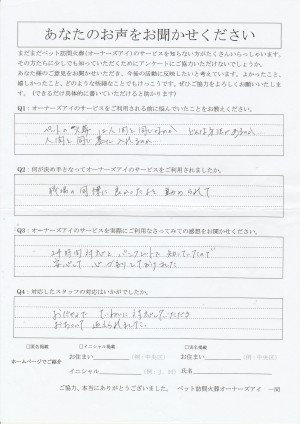 あなたのお声をお聞かせください
まだまだペット訪問火葬(オーナーズアイ)のサービスを知らない方がたくさんいらっしゃいます。
その方たちに少しでも知っていただくためにアンケートにご協力いただけないでしょうか。
あなた様のご意見をお聞かせいただき、今後の活動に反映したいと考えています。よかったこと、
嬉しかったこと、どのような些細なことでもけっこうです。ぜひご協力をよろしくお願いいたしま
す。(できるだけ具体的に書いていただけると助かります)
Q1:オーナーズアイのサービスをご利用される前に悩んでいたことをお教えください。
ペットの火葬は人間と同じなのか どんな方法があるのか
人間と同じ墓に入れるのか
Q2:何が決め手となってオーナーズアイのサービスをご利用されましたか。
職場の同僚に良かったよと勧められて
Q3:オーナーズアイのサービスを実際にご利用なさってみての感想をお聞かせください。
24時間対応とパンフレットで知っていたので
安心して
Q4:対応したスタッフの対応はいかがでしたか。
おだやかで ていねいに対応していただき
□匿名掲載 □イニシャル掲載 □実名掲載
ホームページでご紹介 お住まい (例:中央区) お住まい (例:中央区)
イニシャル (例:J.S) 氏名
ご協力、本当にありがとうございました。 ペット訪問火葬オーナーズアイ